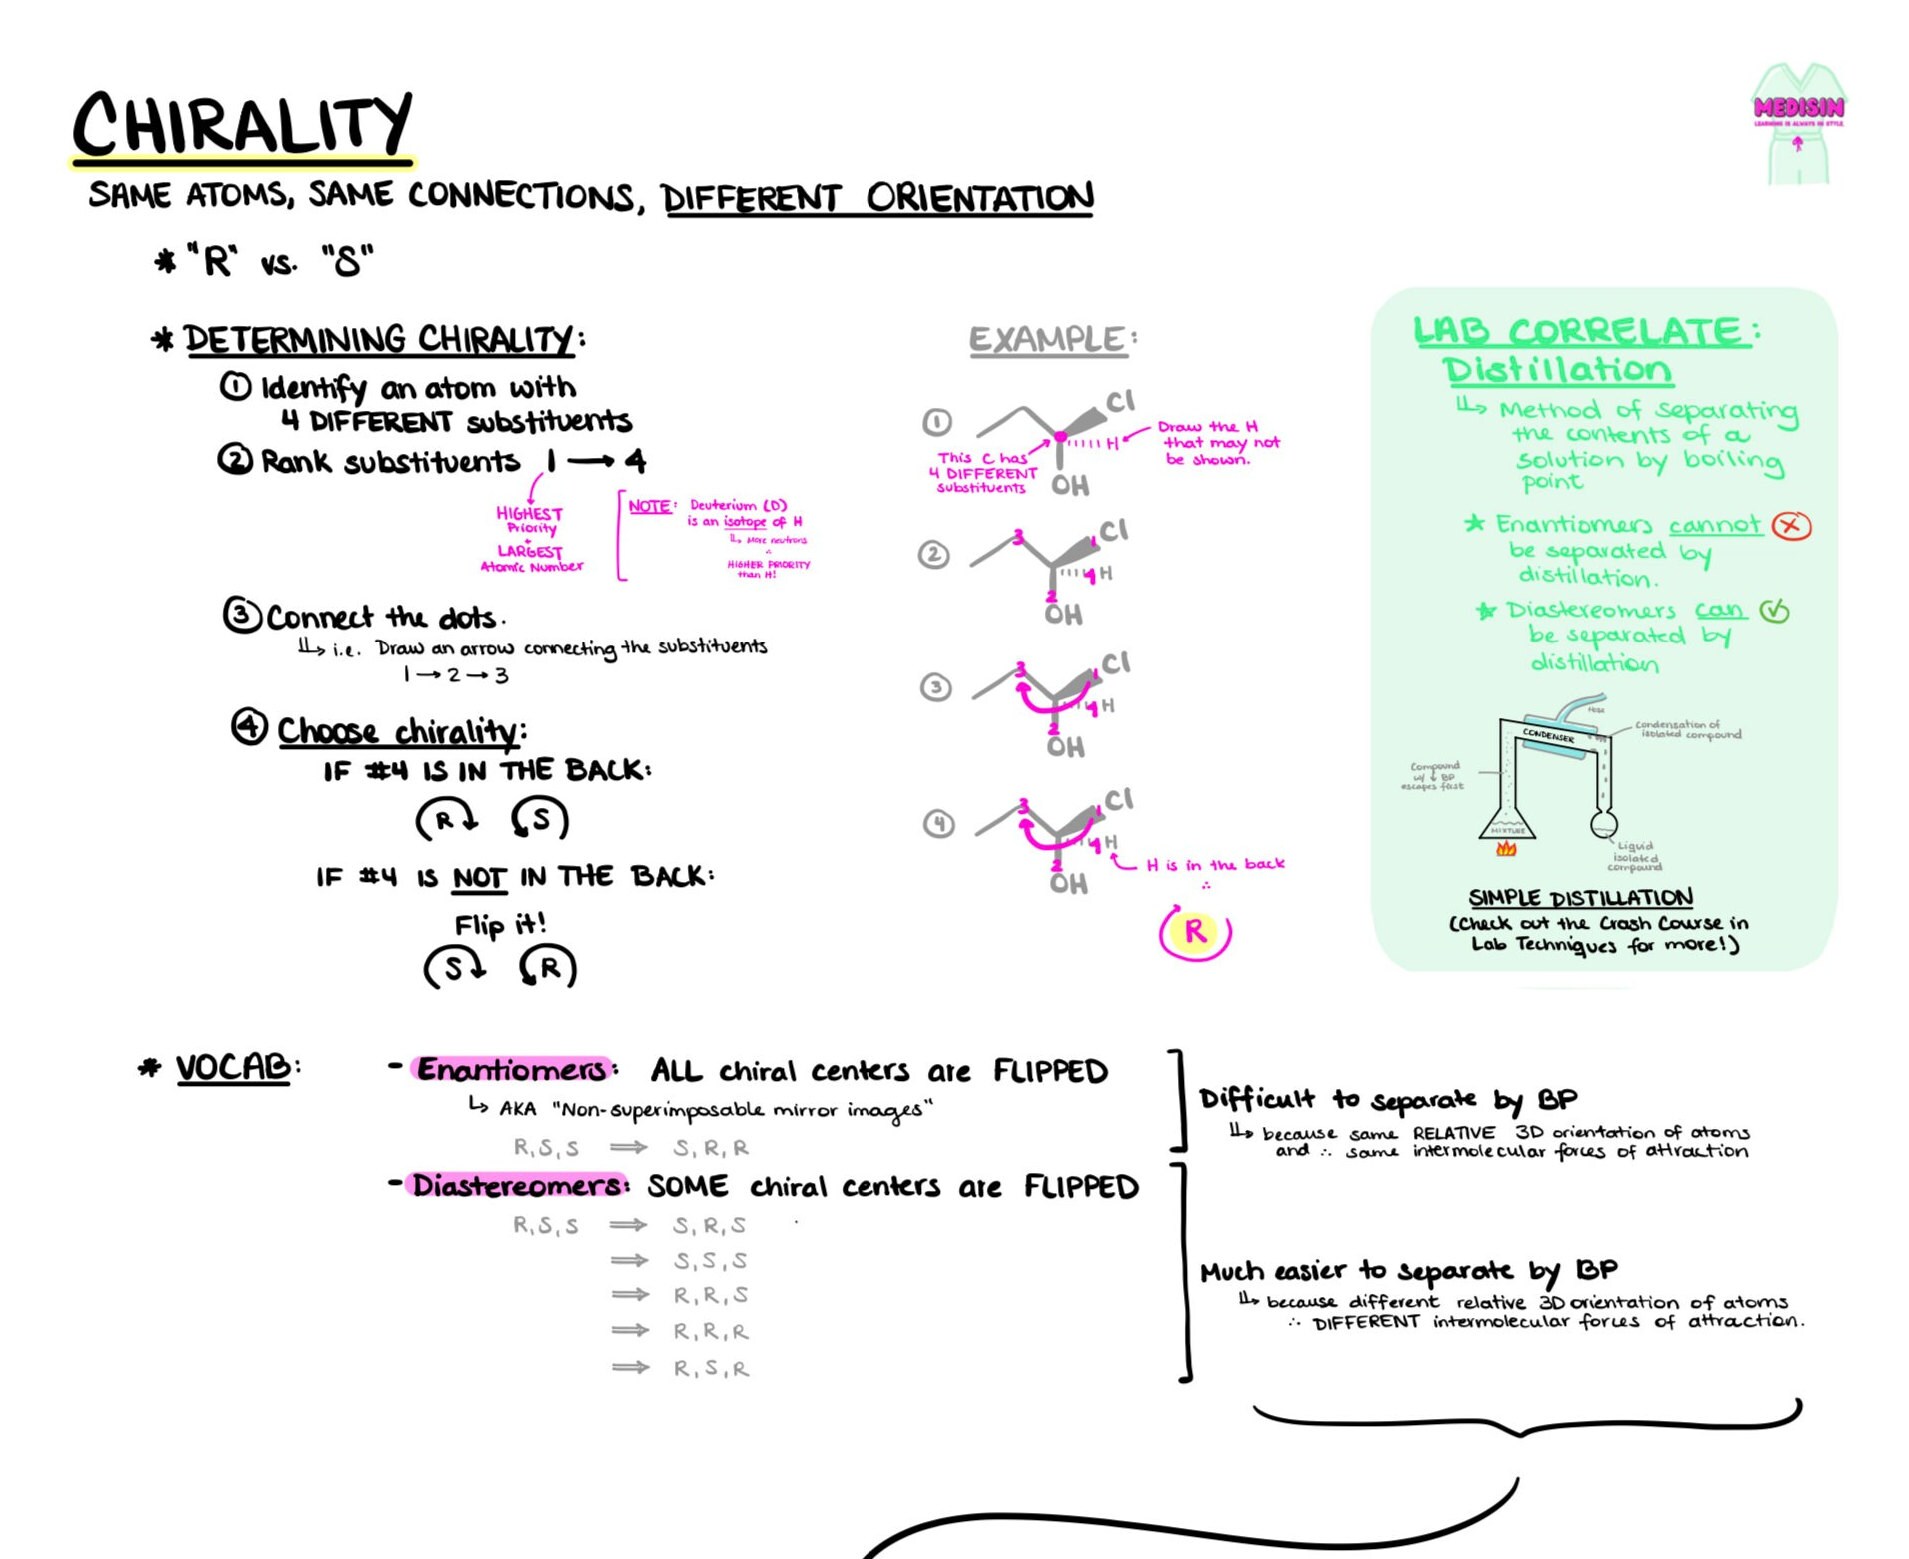 CHIRALITY
MEDISIN
LEARNING IS ALWAYS IN STYLE
SAME ATOMS, SAME CONNECTIONS, DIFFERENT ORIENTATION
* "R" vs. "S"
* DETERMINING CHIRALITY:
① Identify an atom with
4 DIFFERENT substituents
② Rank substituents 1 → 4
HIGHEST
Priority
+
LARGEST
Atomic Number
NOTE: Deuterium (D)
is an isotope of H
↳ More neutrons
∴
HIGHER PRIORITY
than H!
③ Connect the dots.
↳ i.e. Draw an arrow connecting the substituents
1 → 2 → 3
④ Choose chirality:
IF #4 IS IN THE BACK:
R S
IF #4 IS NOT IN THE BACK:
Flip it!
S R
EXAMPLE:
①
Cl
H
OH
This C has
4 DIFFERENT
substituents
Draw the H
that may not
be shown.
②
3 1 Cl
4 H
2
OH
③
3 1 Cl
4 H
2
OH
④
3 1 Cl
4 H
2
OH
H is in the back
∴
R
LAB CORRELATE:
Distillation
↳ Method of separating
the contents of a
solution by boiling
point
★ Enantiomers cannot ⓧ
be separated by
distillation.
★ Diastereomers can ✓
be separated by
distillation
Hose
CONDENSER
Condensation of
isolated compound
Compound
w/ ↓ BP
escapes first
MIXTURE
Liquid
isolated
compound
SIMPLE DISTILLATION
(Check out the Crash Course in
Lab Techniques for more!)
* VOCAB:
- Enantiomers: ALL chiral centers are FLIPPED
↳ AKA "Non-superimposable mirror images"
R,S,S ⟹ S,R,R
Difficult to separate by BP
↳ because same RELATIVE 3D orientation of atoms
and ∴ same intermolecular forces of attraction
- Diastereomers: SOME chiral centers are FLIPPED
R,S,S ⟹ S,R,S
⟹ S,S,S
⟹ R,R,S
⟹ R,R,R
⟹ R,S,R
Much easier to separate by BP
↳ because different relative 3D orientation of atoms
∴ DIFFERENT intermolecular forces of attraction.